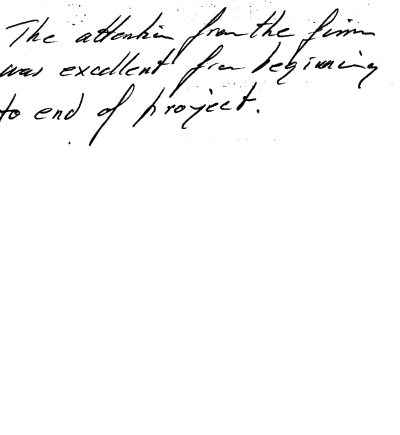 The attention from the firm
was excellent from beginning
to end of project.